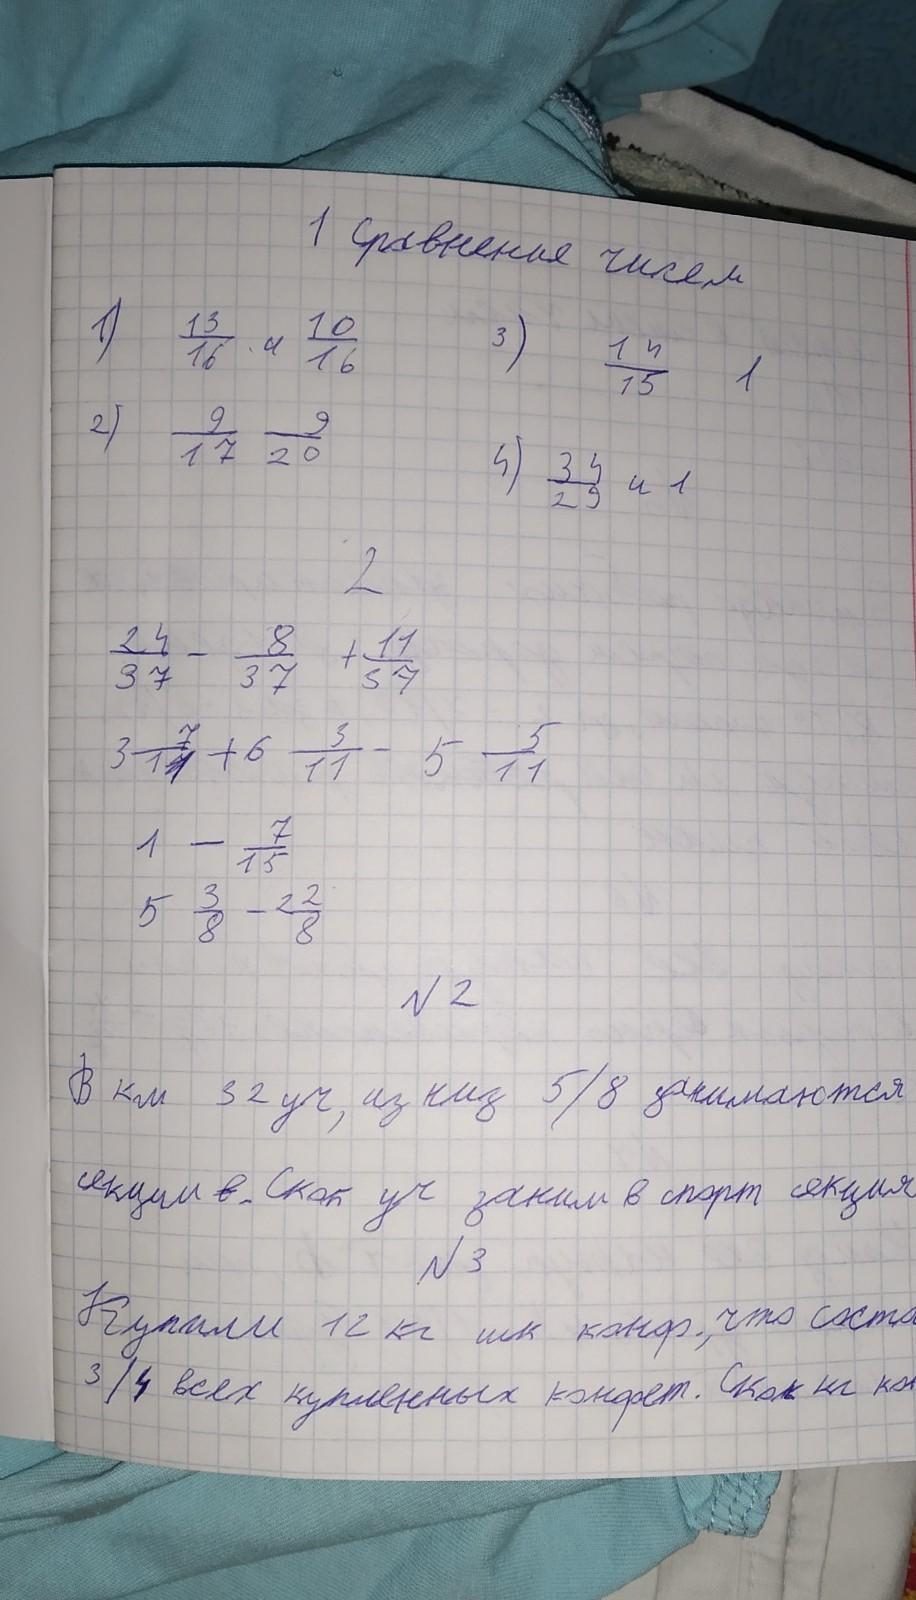 1 Сравнение чисел
1) 13/16 и 10/16
3) 14/15 1
2) 9/17 9/20
4) 34/29 и 1
2
24/37 - 8/37 + 11/37
3 7/11 + 6 3/11 - 5 5/11
1 - 7/15
5 3/8 - 2 2/8
N 2
В кл 32 уч, из них 5/8 занимаются
секции в. Скок уч заним в спорт секция
N 3
Купили 12 кг шк конф., что соста
3/4 всех купленных конфет. Скок кг кон